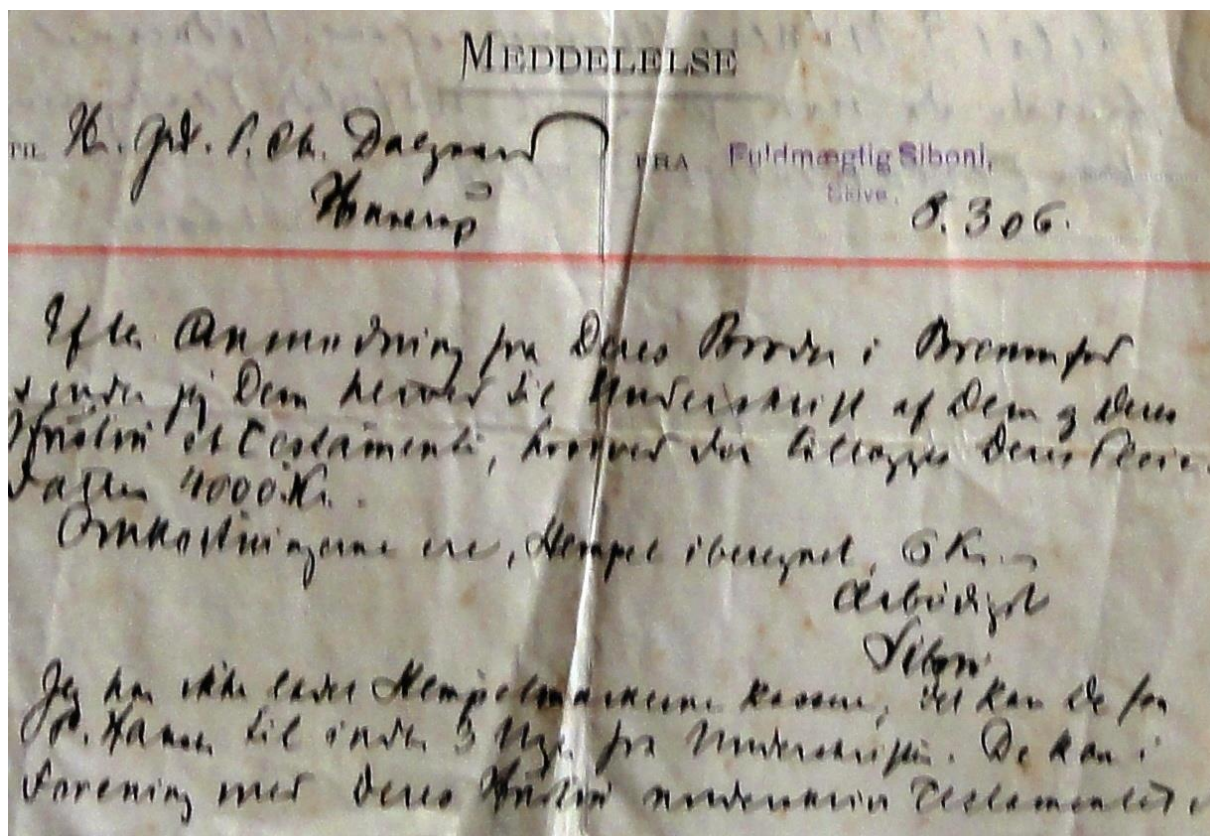 MEDDELELSE
TIL Hr. Grd. P. Chr. Dalgaard FRA Fuldmægtig Siboni,
Skive.
Hinnerup 8.3 06.
Efter Anmodning fra Deres Broder i
sender jeg Dem herved til Underskrift af Dem og Deres
Hustru et Testamente, hvorved der tillægges Deres Pleie-
datter 4000 Kr.
Omkostningerne ere, Stempel iberegnet, 6 Kr.
Ærbødigst
Siboni
Jeg har ikke ladet Stempelmærkerne kassere, det kan De faa
til inden 3 Uger fra Underskriften. De kan i
Forening med Deres Hustru underskrive Testamentet